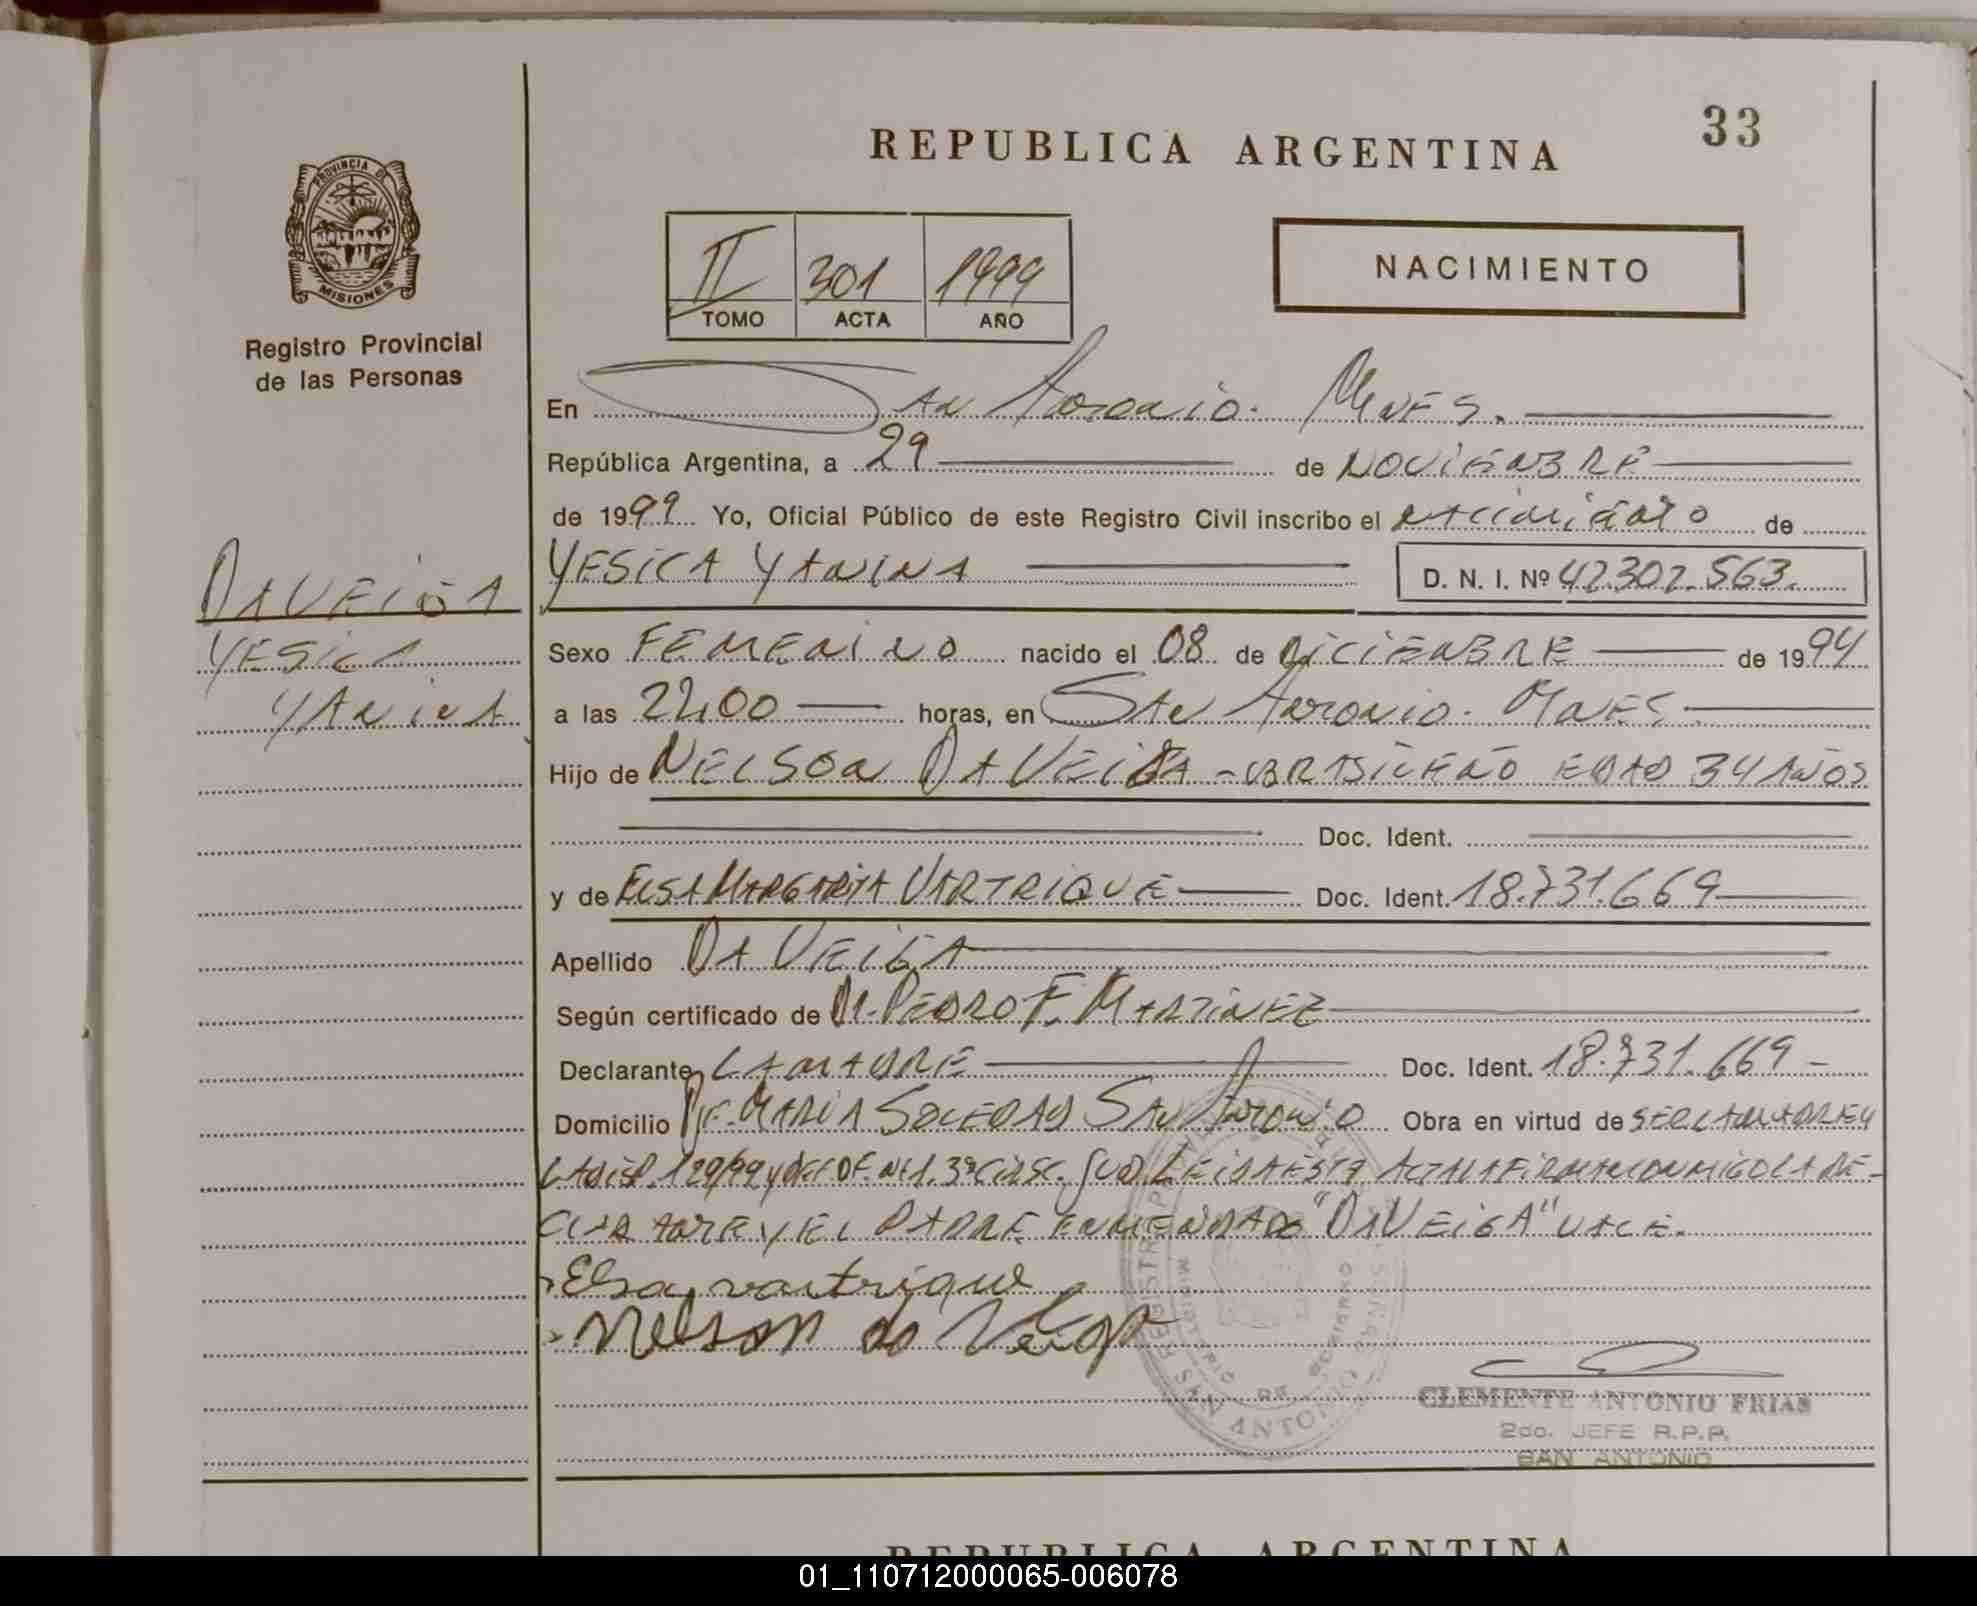 33
REPUBLICA ARGENTINA
PROVINCIA DE
MISIONES
Registro Provincial
de las Personas
II 301 1999
TOMO ACTA AÑO
NACIMIENTO
En San Antonio. Mnes.
República Argentina, a 29 de NOVIEMBRE
de 1999 Yo, Oficial Público de este Registro Civil inscribo el nacimiento de
DA VEIGA
YESICA
YANINA
YESICA YANINA D. N. I. Nº 42.302.563.
Sexo FEMENINO nacido el 08 de DICIEMBRE de 1994
a las 22,00 horas, en San Antonio. Mnes
Hijo de NELSON DA VEIGA - BRASILEÑO EDAD 34 AÑOS
Doc. Ident.
y de ELSA MARGARITA VARTRIQUE Doc. Ident. 18.731.669
Apellido DA VEIGA
Según certificado de Dr. PEDRO F. MARTINEZ
Declarante LA MADRE Doc. Ident. 18.731.669
Domicilio MARIA SOLEDAD SAN ANTONIO Obra en virtud de SER LA MADRE Y
LA DISP. 129/99 LEIDA ESTA ACTA LA FIRMAN CONMIGO LA DE-
CLARANTE Y EL PADRE ENMENDADO "DA VEIGA" VALE.
Elsa vartrique
Nelson da Veiga
SAN ANTONIO
CLEMENTE ANTONIO FRIAS
2do. JEFE R.P.P.
SAN ANTONIO
REPUBLICA ARGENTINA
01_110712000065-006078